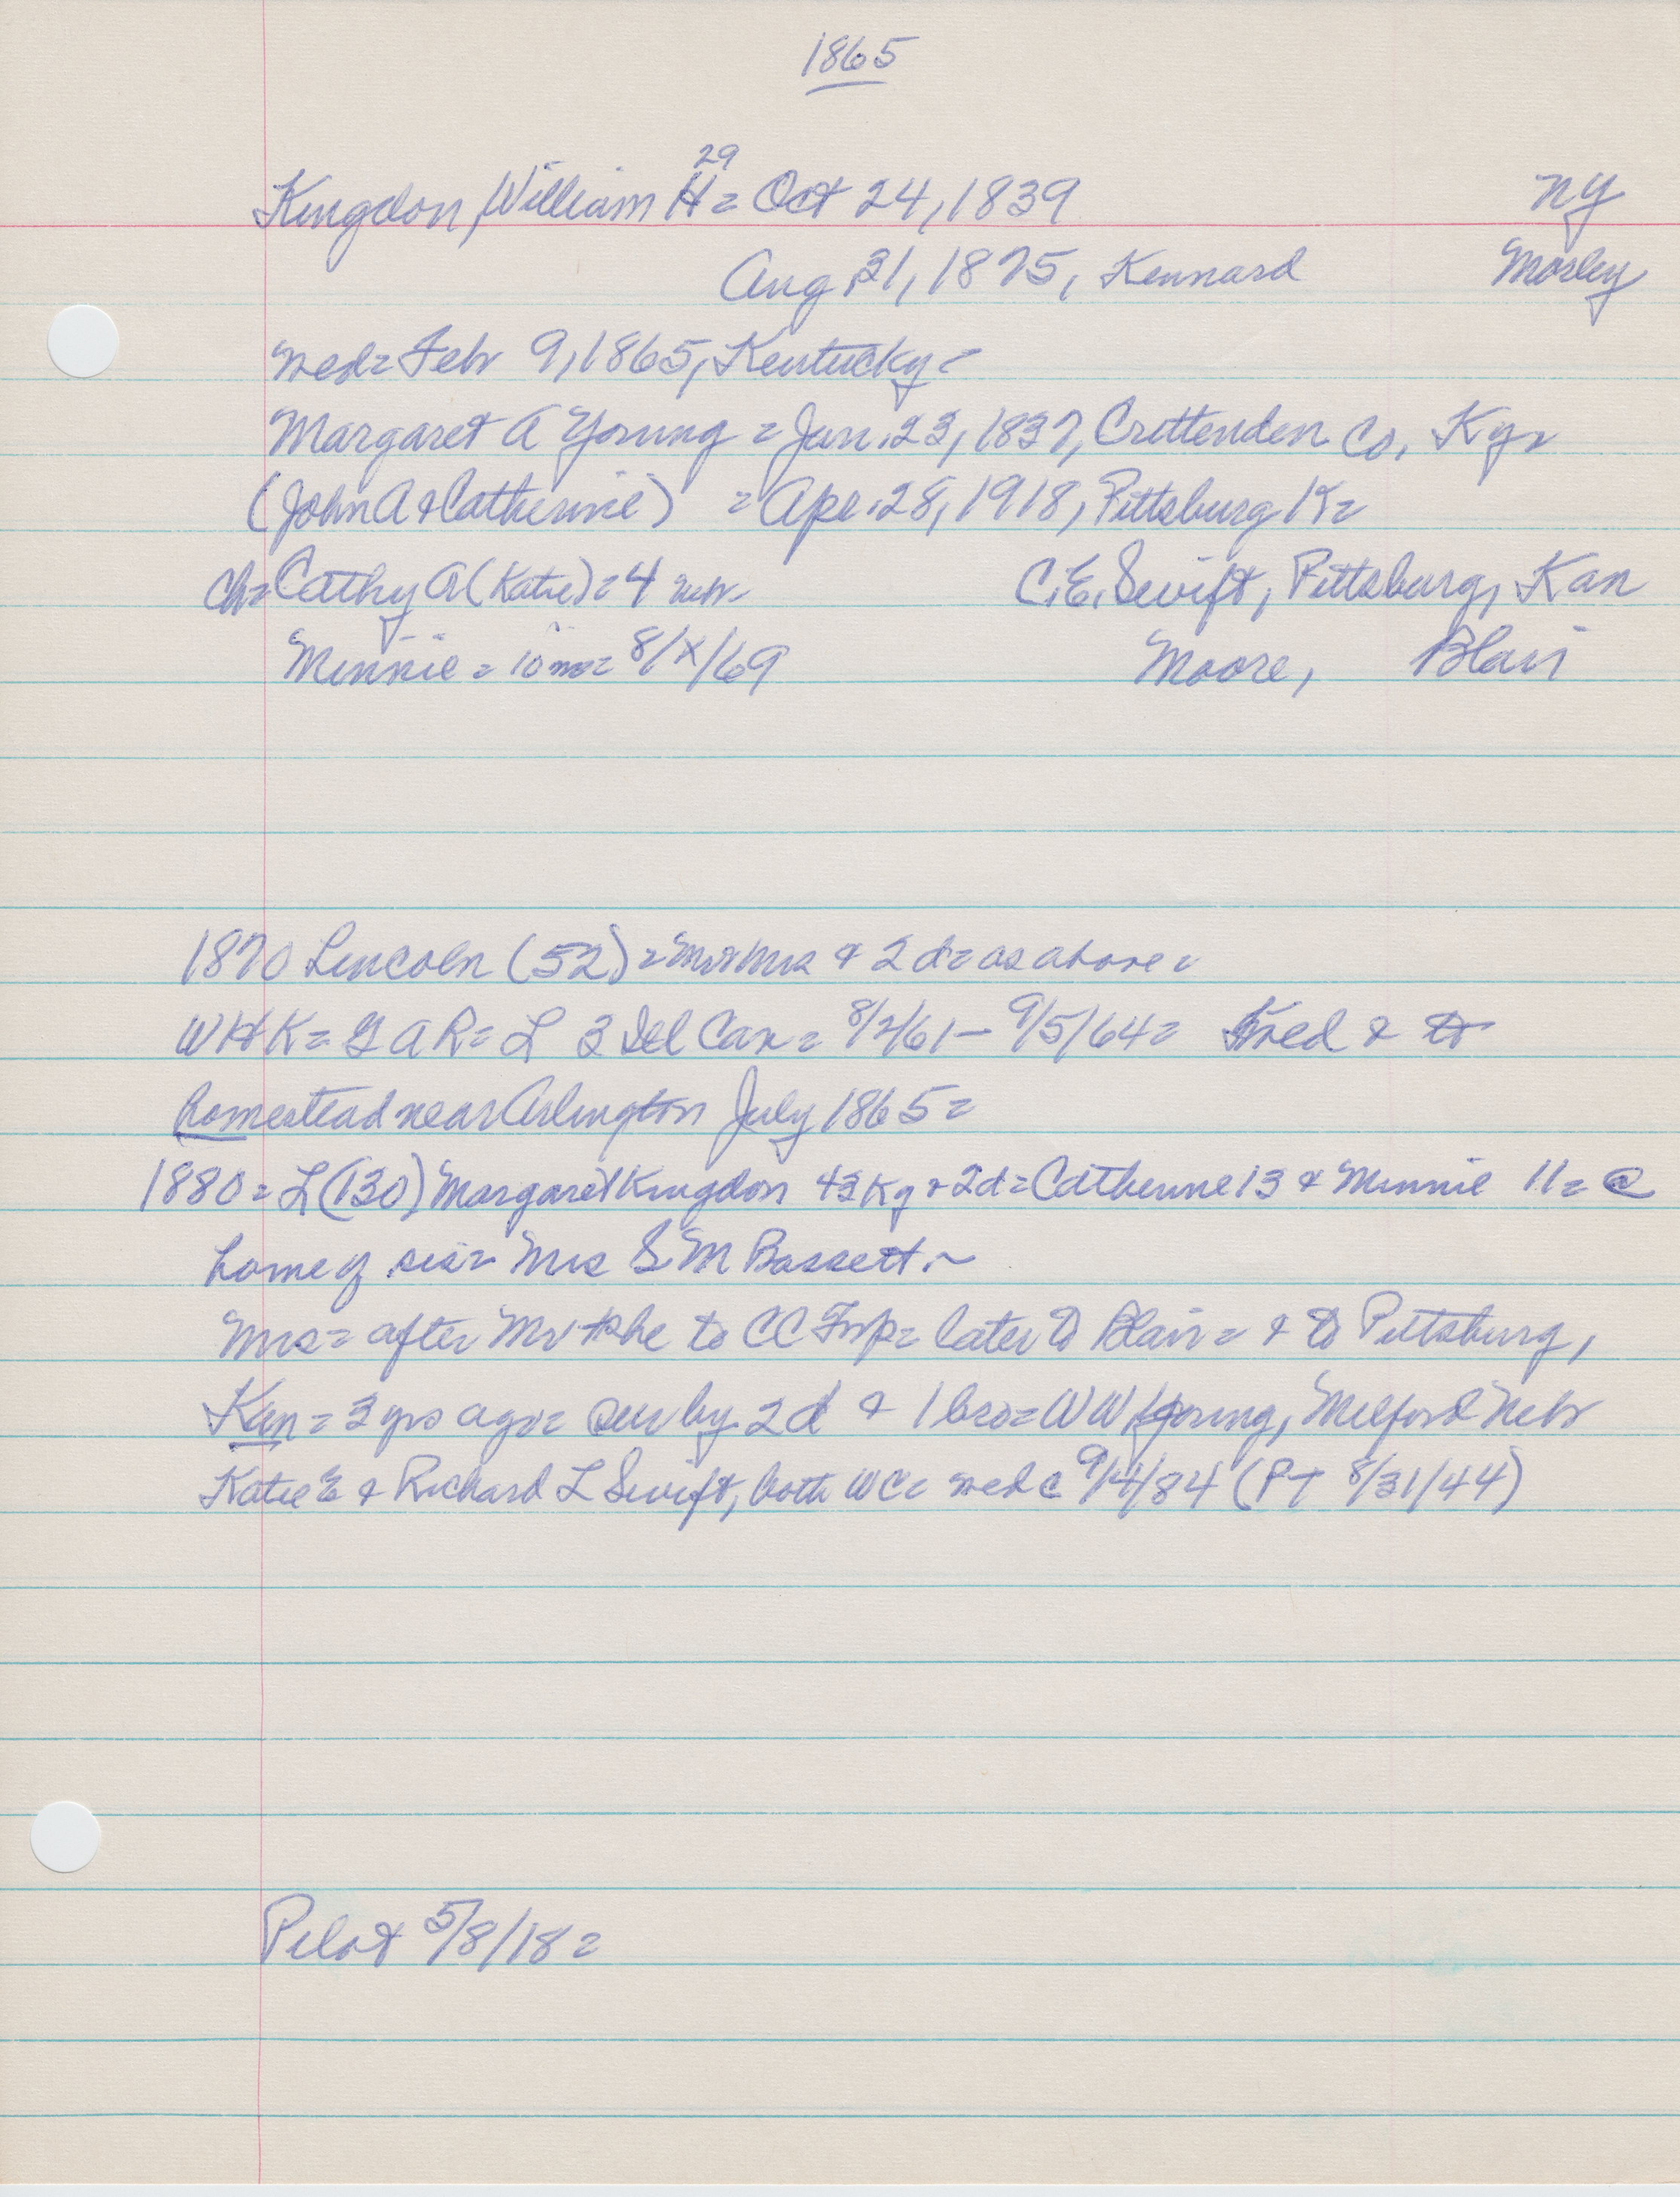 1865
29
Kingdon, William H = Oct 24, 1839 NY
Aug 31, 1875, Kennard Mosley
med = Febr 9, 1865, Kentucky =
Margaret A Young = Jan. 23, 1837, Crittenden Co, Ky =
(John A & Catherine) = Apr. 28, 1918, Pittsburg K =
ch = Cathy A (Katie) = 4 nebr C. E. Swift, Pittsburg, Kan
Minnie = 10 mo = 8/x/69 Moore, Blair
1870 Lincoln (52) = Mr & Mrs & 2 d = as above =
WHK = GAR = L 3 Del Cav = 8/2/61 - 9/5/64 = med & to
homestead near Arlington July 1865 =
1880 = L (130) Margaret Kingdon 43 Ky & 2d = Catherine 13 & Minnie 11 = @
home of sis = Mrs S M Bassett. ~
Mrs = after Mr she to CC Twp = later to Blair = & to Pittsburg,
Kan = 3 yrs ago = sur by 2 d & 1 bro = W W Young, Milford Nebr
Katie E & Richard L Swift, both WC = med c 9/4/84 (PT 8/31/44)
Pilot 5/8/18 =